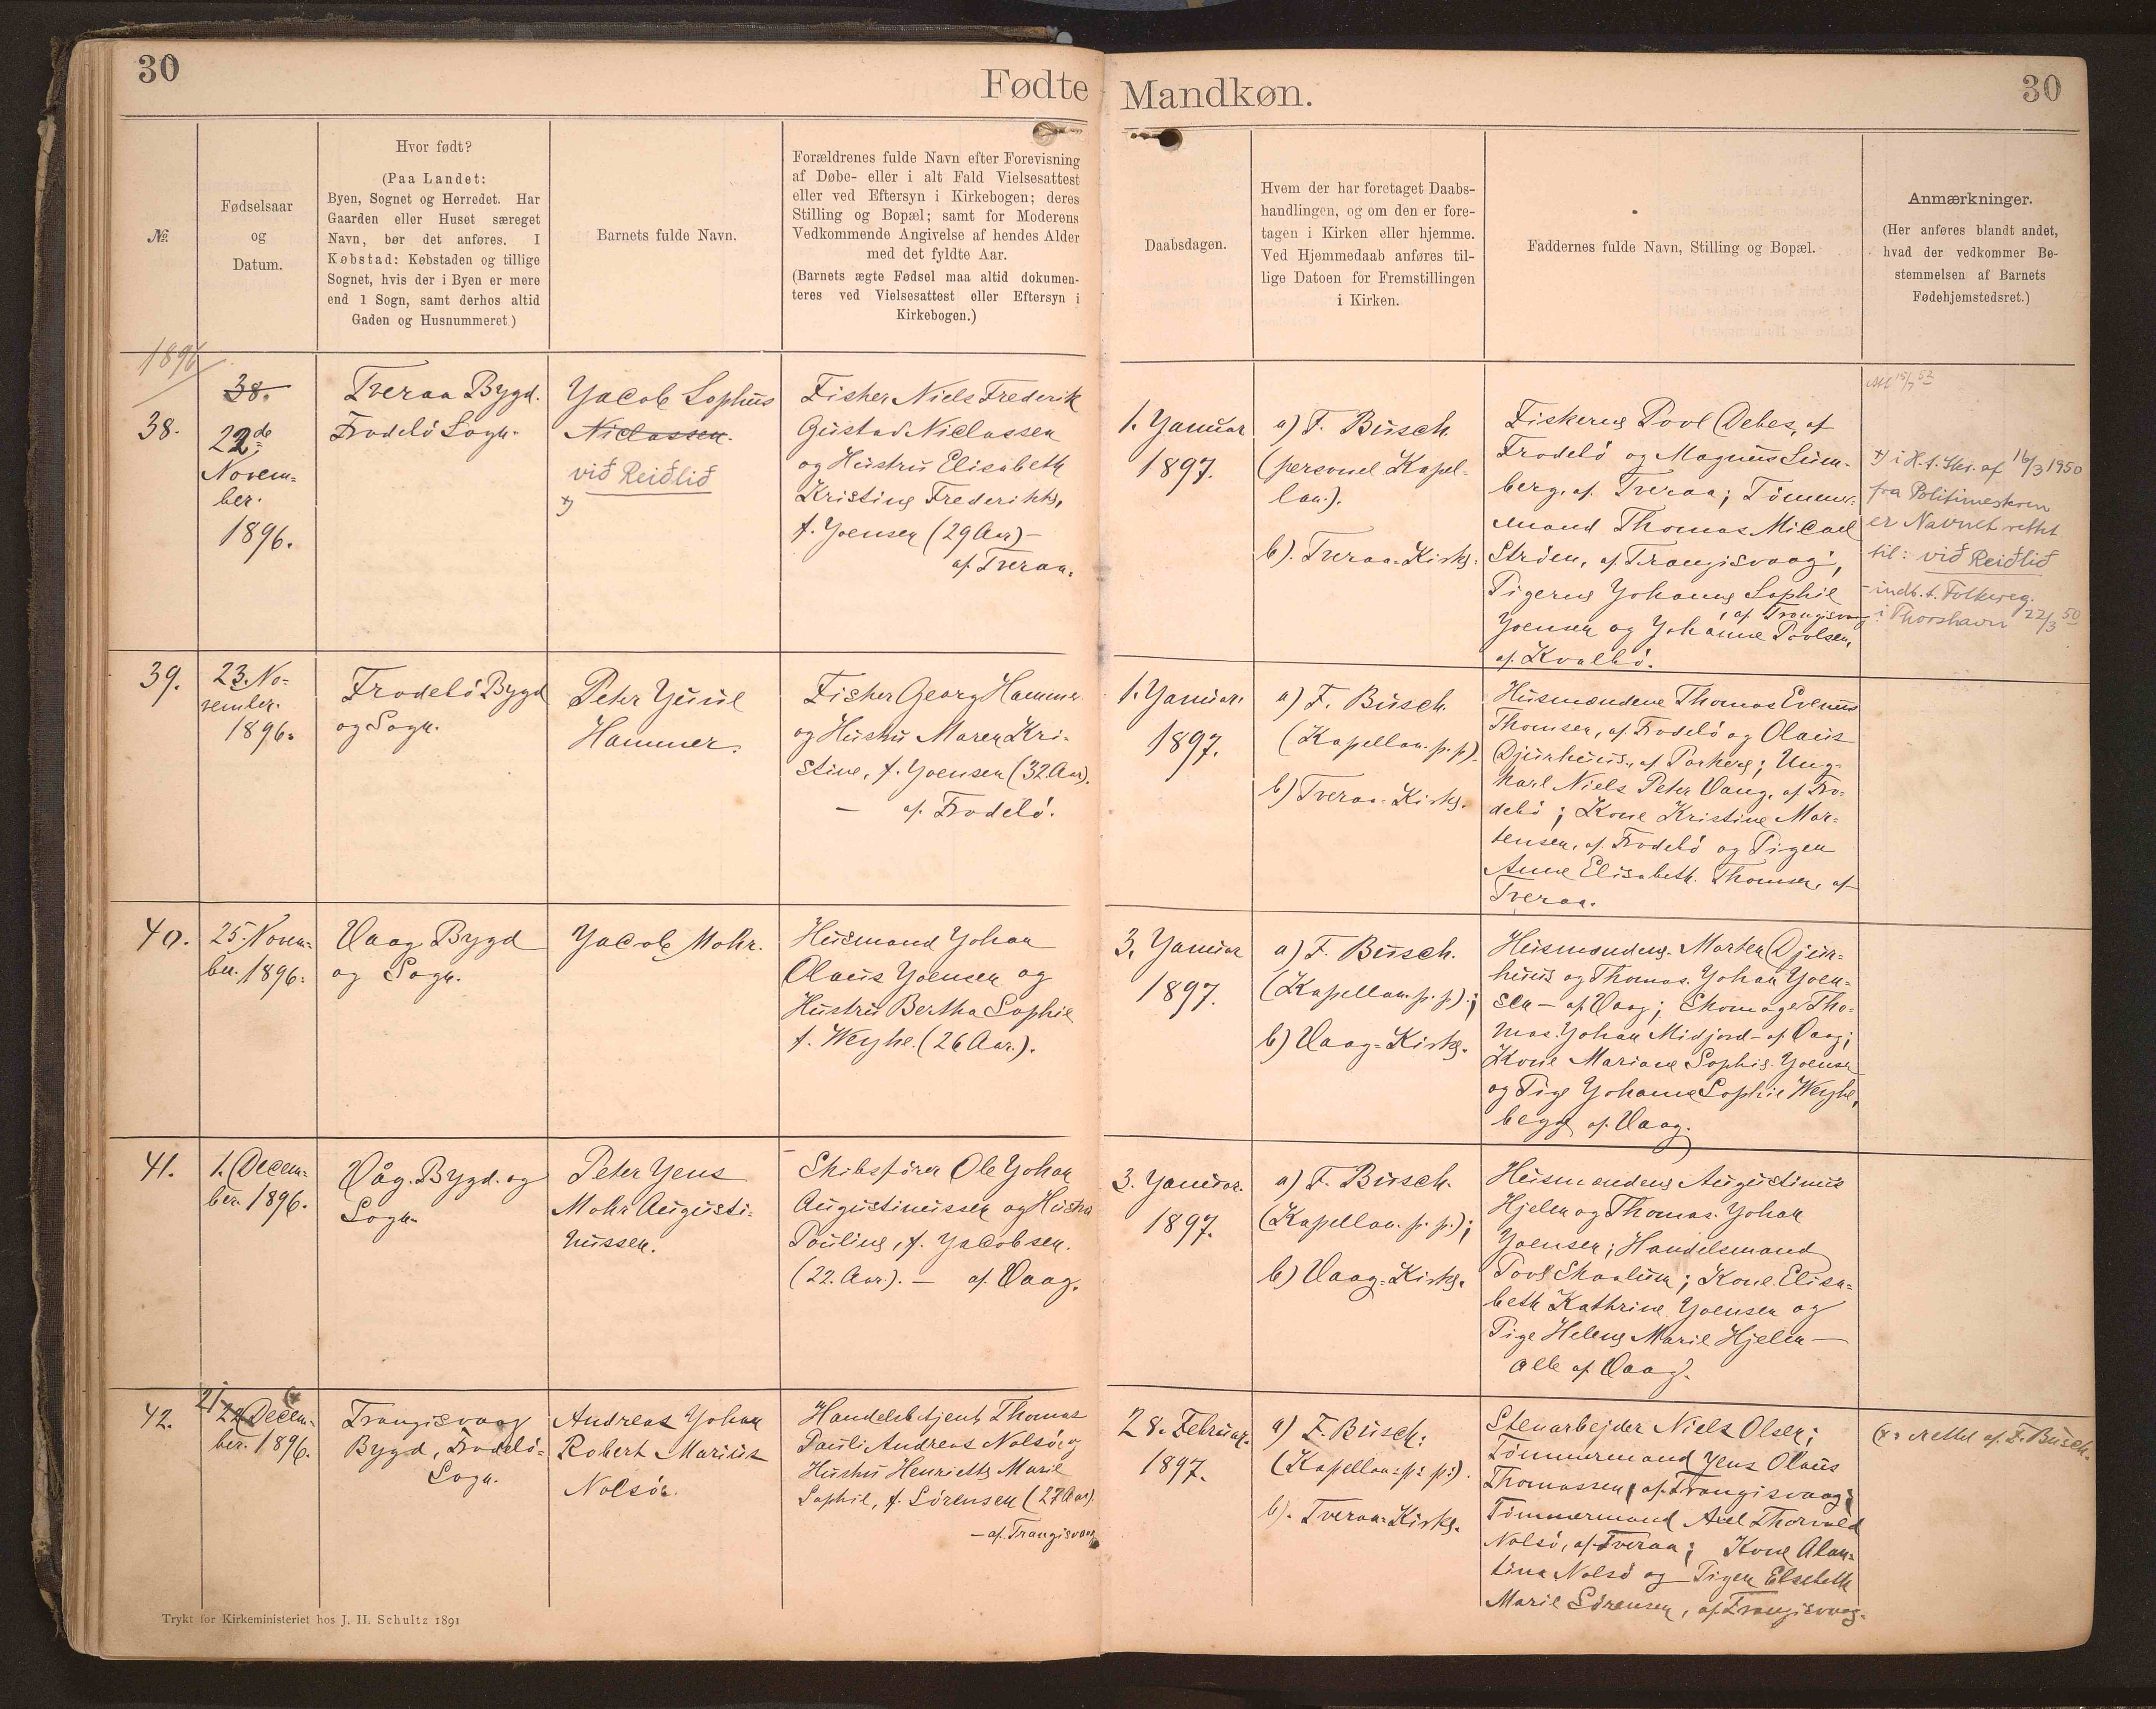 30
Fødte
Mandkøn.
30
№.
Fødselsaar
og
Datum.
Hvor født?
(Paa Landet:
Byen, Sognet og Herredet. Har
Gaarden eller Huset særeget
Navn, bør det anføres. I
Købstad: Købstaden og tillige
Sognet, hvis der i Byen er mere
end 1 Sogn, samt derhos altid
Gaden og Husnummeret.)
Barnets fulde Navn.
Forældrenes fulde Navn efter Forevisning
af Døbe- eller i alt Fald Vielsesattest
eller ved Eftersyn i Kirkebogen; deres
Stilling og Bopæl; samt for Moderens
Vedkommende Angivelse af hendes Alder
med det fyldte Aar.
(Barnets ægte Fødsel maa altid dokumen-
teres ved Vielsesattest eller Eftersyn i
Kirkebogen.)
Daabsdagen.
Hvem der har foretaget Daabs-
handlingen, og om den er fore-
tagen i Kirken eller hjemme.
Ved Hjemmedaab anføres til-
lige Datoen for Fremstillingen
i Kirken.
Faddernes fulde Navn, Stilling og Bopæl.
Anmærkninger.
(Her anføres blandt andet,
hvad der vedkommer Be-
stemmelsen af Barnets
Fødehjemstedsret.)
1896
38.
38.
22de
Novem=
ber.
1896.
Tveraa Bygd.
Frodebö Sogn.
Jacob Sophus
Niclassen.
við Reiðlið
x)
Fisker Niels Frederik
Gustav Niclassen
og Hustru Elisabeth
Kristine Frederikke,
f. Joensen (29 Aar) –
af Tveraa.
1. Januar
1897.
a) F. Busch
(personel Kapel-
lan.).
b). Tveraa=Kirke.
Fiskerne Povl Debes, af
Frodebö og Magnus Lüm-
berg, af Tveraa; Tömmer-
mand Thomas Micael
Ström, af Trangisvaag;
Pigerne Johanne Sophie
Joensen, af Trangisvaag
og Johanne Poulsen,
af Kvalbö.
x) i H. t. Skr. af 16/3 1950
fra Politimesteren
er Navnet rettet
til: við Reiðlið
- indb. t. Folkereg.
i Thorshavn 22/3 50
39.
23. No-
vember.
1896.
Frodebö Bygd
og Sogn.
Peter Juul
Hammer.
Fisker Georg Hammer
og Hustru Maren Kri-
stine, f. Joensen (32 Aar).
– af Frodebö.
1. Januar.
1897.
a) F. Busch.
(Kapellan. p. p).
b) Tveraa=Kirke.
Husmændene Thomas Evenus
Thomsen, af Frodebö og Olaus
Djurhuus, af Porkere; Ung-
karl Niels Peter Vang, af Fro-
debö; Kone Kristine Mor-
tensen, af Frodebö og Pigen
Anne Elisabeth Thomsen, af
Tveraa.
40.
25. Novem=
ber. 1896.
Vaag Bygd
og Sogn.
Jacob Mohr.
Husmand Johan
Olaus Joensen og
Hustru Bertha Sophie
f. Weyhe. (26 Aar.).
3. Januar
1897.
a) F. Busch.
(Kapellan. p. p).;
b) Vaag=Kirke.
Husmændene Morten Djur=
huus og Thomas Johan Joen=
sen – af Vaag; Skomager Tho=
mas Johan Midjord – af Vaag;
Kone Mariane Sophie Joensen
og Pige Johanne Sophie Weyhe,
begge af Vaag.
41.
1. Decem=
ber. 1896.
Våg. Bygd. og
Sogn.
Peter Jens
Mohr Augusti=
nussen.
Skibsförer Ole Johan
Augustinussen og Hustru
Pouline, f. Jacobsen.
(22. Aar.). – af Vaag.
3. Januar.
1897.
a) F. Busch.
(Kapellan. p. p.);
b) Vaag=Kirke.
Husmændene Augustinus
Hjelm og Thomas Johan
Joensen; Handelsmand
Povl Skaalum; Kone Elisa=
beth Kathrine Joensen og
Pige Helene Marie Hjelm –
alle af Vaag.
42.
21. (x
22 Decem-
ber. 1896.
Trangisvaag
Bygd, Frodebö=
Sogn.
Andreas Johan
Robert Marius
Nolsöe.
Handelsbetjent Thomas
Pauli Andreas Nolsöe og
Hustru Henriette Marie
Sophie, f. Sörensen (27 Aar).
– af Trangisvaag
28. Februar.
1897.
a) F. Busch:
(Kapellan: p: p:).
b). Tveraa=Kirke.
Stenarbejder Niels Olsen;
Tömmermand Jens Olaus
Thomassen, af Trangisvaag;
Tömmermand Axel Thorvald
Nolsö, af Tveraa; Kone Alan=
tina Nolsö og Pigen Elsebeth
Marie Sörensen, af Trangisvaag.
(x: rettet af F. Busch.
Trykt for Kirkeministeriet hos J. H. Schultz 1891